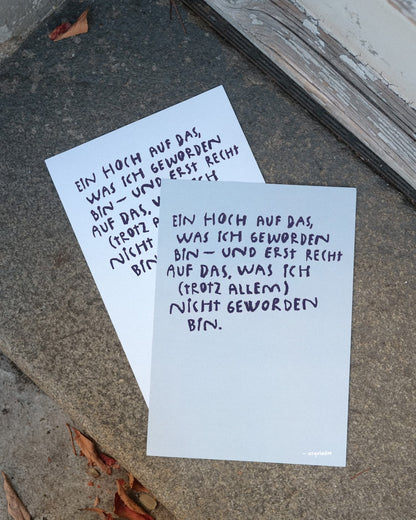 EIN HOCH AUF DAS,
WAS ICH GEWORDEN
BIN – UND ERST RECHT
AUF DAS, W
ICH
(TROTZ A
NICHT
BIN
EIN HOCH AUF DAS,
WAS ICH GEWORDEN
BIN – UND ERST RECHT
AUF DAS, WAS ICH
(TROTZ ALLEM)
NICHT GEWORDEN
BIN.